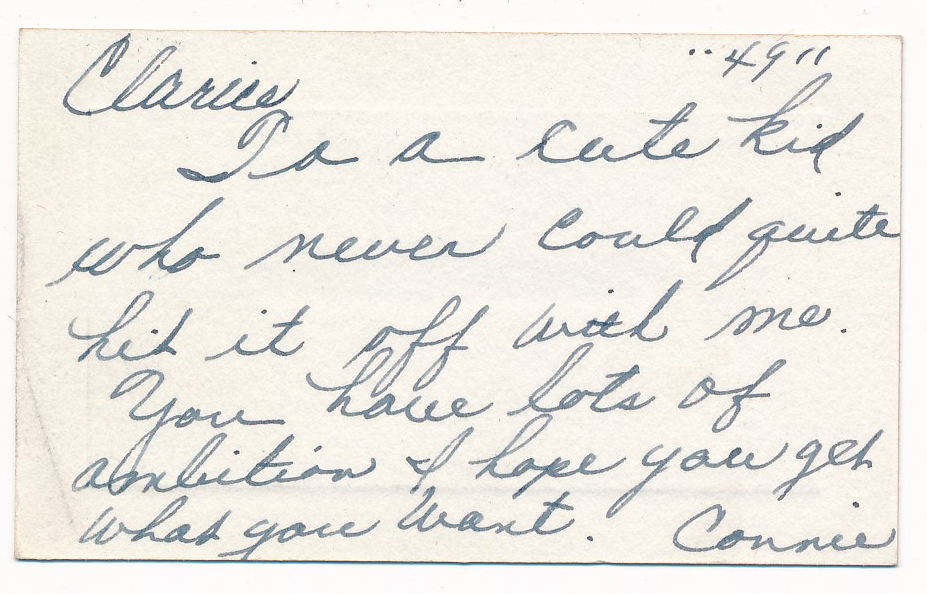 "49"
Clarice
To a cute kid
who never could quite
hit it off with me.
You have lots of
ambition & hope you get
what you want. Connie